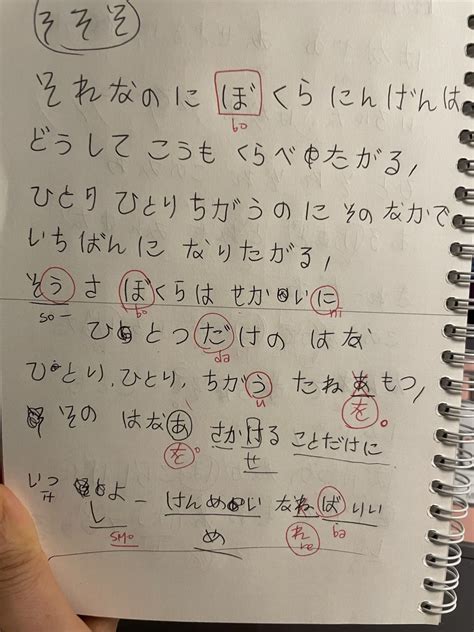 そそそ
それなのにぼくらにんげんは
bo
どうしてこうもくらべたがる,
ひとりひとりちがうのにそのなかで
いちばんになりたがる,
そうさぼくらはせかいに
so- bo ni
ひとつだけのはな
da
ひとり,ひとり,ちがうたねあもつ,
u を。
そのはなあさかけることだけに
を。 せ
いっしょーけんめいなねばいい
smo め れ re ba